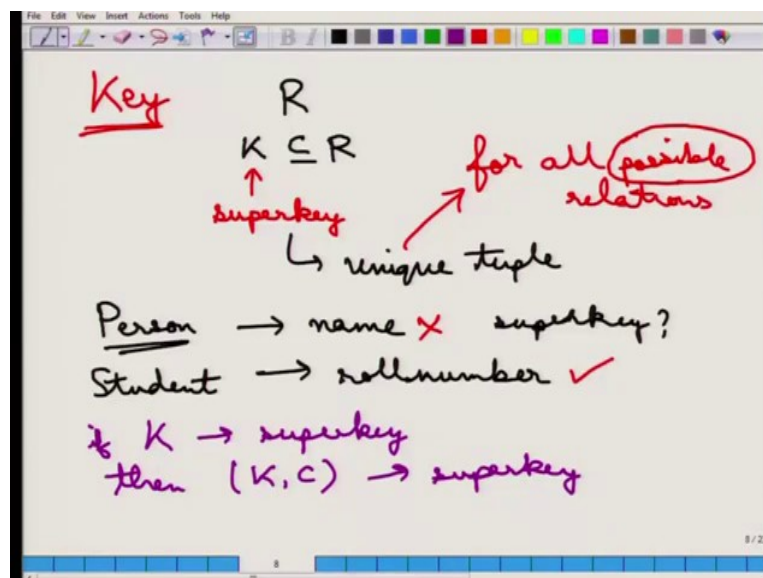 File Edit View Insert Actions Tools Help
Key
R
K ⊆ R
for all possible
relations
↑
superkey
↳ unique tuple
Person → name ✗ superkey?
Student → rollnumber ✓
if K → superkey
then (K, C) → superkey
8/2
8